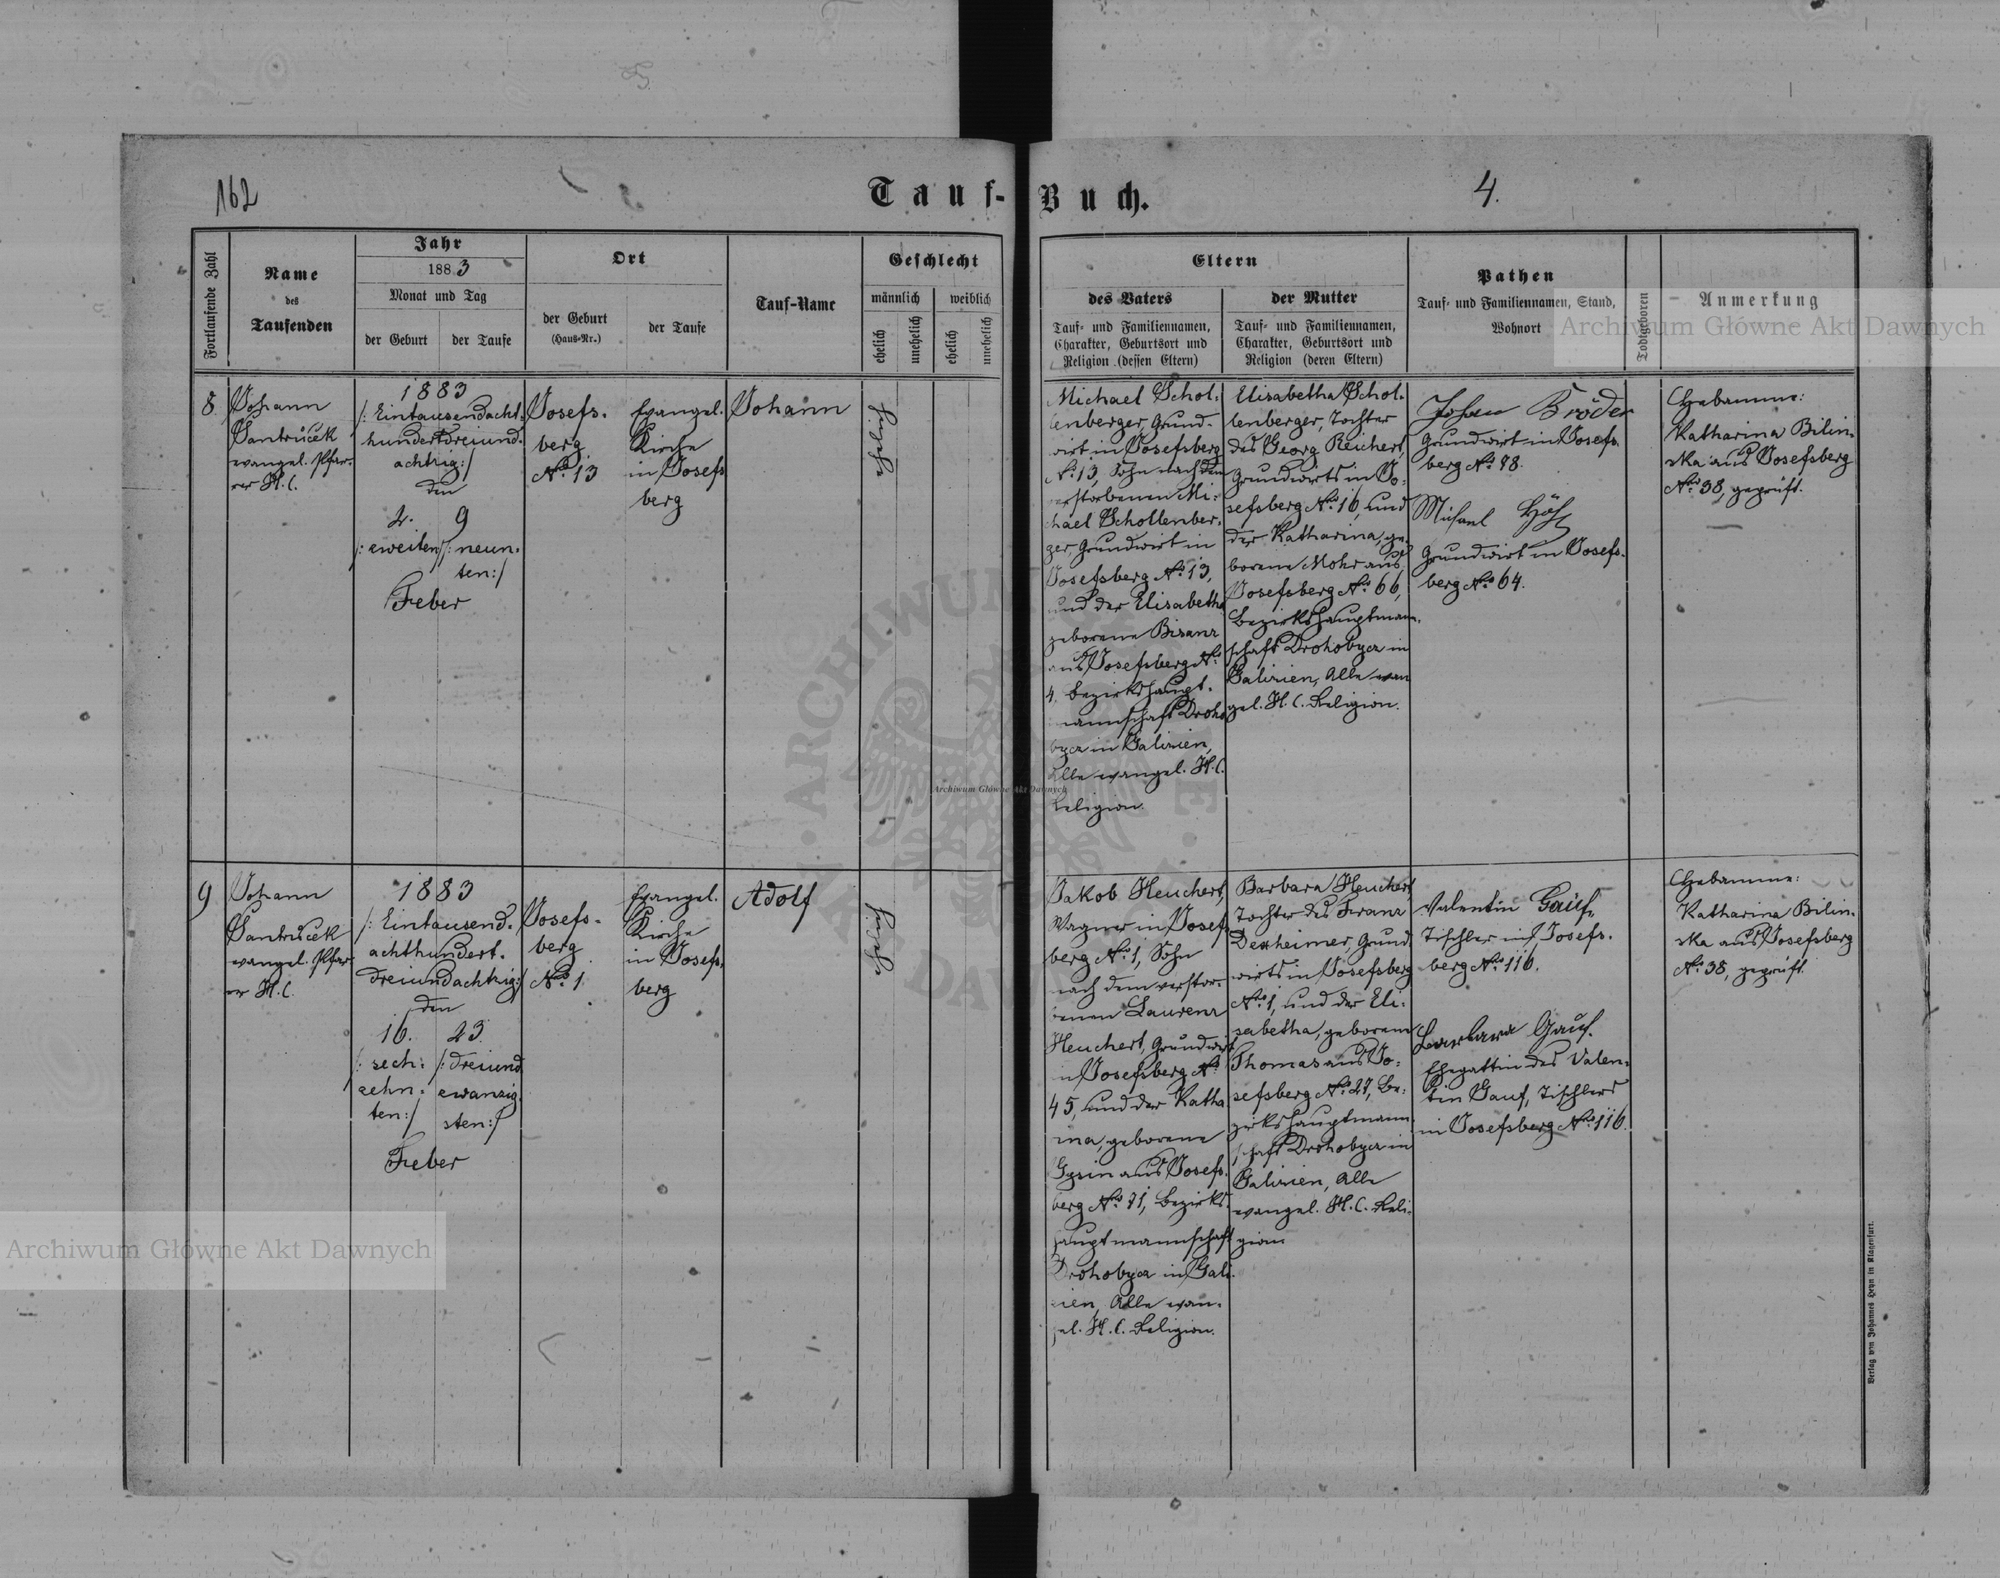 162
Tauf-Buch.
4.
Fortlaufende Zahl
Name
des
Taufenden
Jahr
1883
Monat und Tag
der Geburt
der Taufe
Ort
der Geburt
(Haus-Nr.)
der Taufe
Tauf-Name
Geschlecht
männlich
weiblich
ehelich
unehelich
ehelich
unehelich
Eltern
des Vaters
Tauf- und Familiennamen,
Charakter, Geburtsort und
Religion (dessen Eltern)
der Mutter
Tauf- und Familiennamen,
Charakter, Geburtsort und
Religion (deren Eltern)
Pathen
Tauf- und Familiennamen, Stand,
Wohnort
Todtgeboren
Anmerkung
8
Johann
Jantrůcek
evangel. Pfar-
rer H. C.
1883
/: Eintausendacht-
hundertdreiund-
achtzig :/
den
2.
/: zweiten
9
/: neun-
ten :/
Feber
Josefs-
berg
No 13
Evangel.
Kirche
in Josefs
berg
Johann
ehelich
Michael Schol-
lenberger, Grund-
wirt in Josefsberg
No 13, Sohn nach dem
verstorbenen Mi-
chael Schollenber-
ger, Grundwirt in
Josefsberg No 13,
und der Elisabetha
geborene Bisanz
aus Josefsberg No
4, Bezirkshaupt-
mannschaft Droho
bycz in Galizien,
Alle evangel. H. C.
Religion.
Elisabetha Schol-
lenberger, Tochter
des Georg Reichert,
Grundwirts in Jo-
sefsberg No 16, und
der Katharina, ge-
borene Mohr aus
Josefsberg No 66,
Bezirkshauptmann-
schaft Drohobycz in
Galizien, Alle evan
gel. H. C. Religion.
Johan Bröder
Grundwirt in Josefs-
berg No 78.
Michael Höh
Grundwirt in Josefs-
berg No 64.
Hebamme:
Katharina Bilin-
ska aus Josefsberg
No 38, geprüft.
9
Johann
Jantrůcek
evangel. Pfar-
rer H. C.
1883
/: Eintausend-
achthundert-
dreiundachtzig :/
den
16.
/: sech-
zehn-
ten :/
23.
/: dreiund
zwanzig-
sten :/
Feber
Josefs-
berg
No 1
Evangel.
Kirche
in Josefs-
berg
Adolf
ehelich
Jakob Heuchert,
Wagner in Josefs
berg No 1, Sohn
nach dem verstor-
benen Laurenz
Heuchert, Grundwirt
in Josefsberg No
45, und der Katha
rina, geborene
Gysin aus Josefs-
berg No 71, Bezirks-
hauptmannschaft
Drohobycz in Gali-
zien, Alle evan-
gel. H. C. Religion.
Barbara Heuchert,
Tochter des Franz
Dexheimer, Grund
wirts in Josefsberg
No 1, und der Eli-
sabetha, geborene
Thomas aus Jo-
sefsberg No 27, Be-
zirkshauptmann
schaft Drohobycz in
Galizien, Alle
evangel. H. C. Reli-
gion
Valentin Gauf,
Tischler in Josefs-
berg No 116.
Barbara Gauf.
Ehegattin des Valen-
tin Gauf, Tischlers
in Josefsberg No 116.
Hebamme:
Katharina Bilin-
ska aus Josefsberg
No 38, geprüft.
Verlag von Johannes Heyn in Klagenfurt.
Archiwum Główne Akt Dawnych
Archiwum Główne Akt Dawnych
Archiwum Główne Akt Dawnych